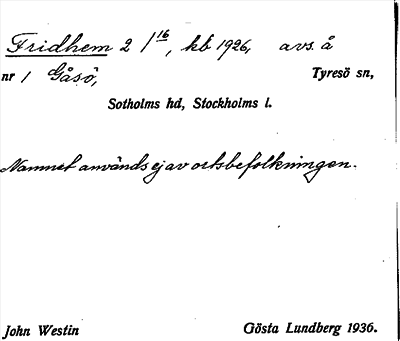 Fridhem 2 1/16, kb 1926, avs. å
nr 1 Gåsö, Tyresö sn,
Sotholms hd, Stockholms l.
Namnet används ej av ortsbefolkningen.
John Westin Gösta Lundberg 1936.